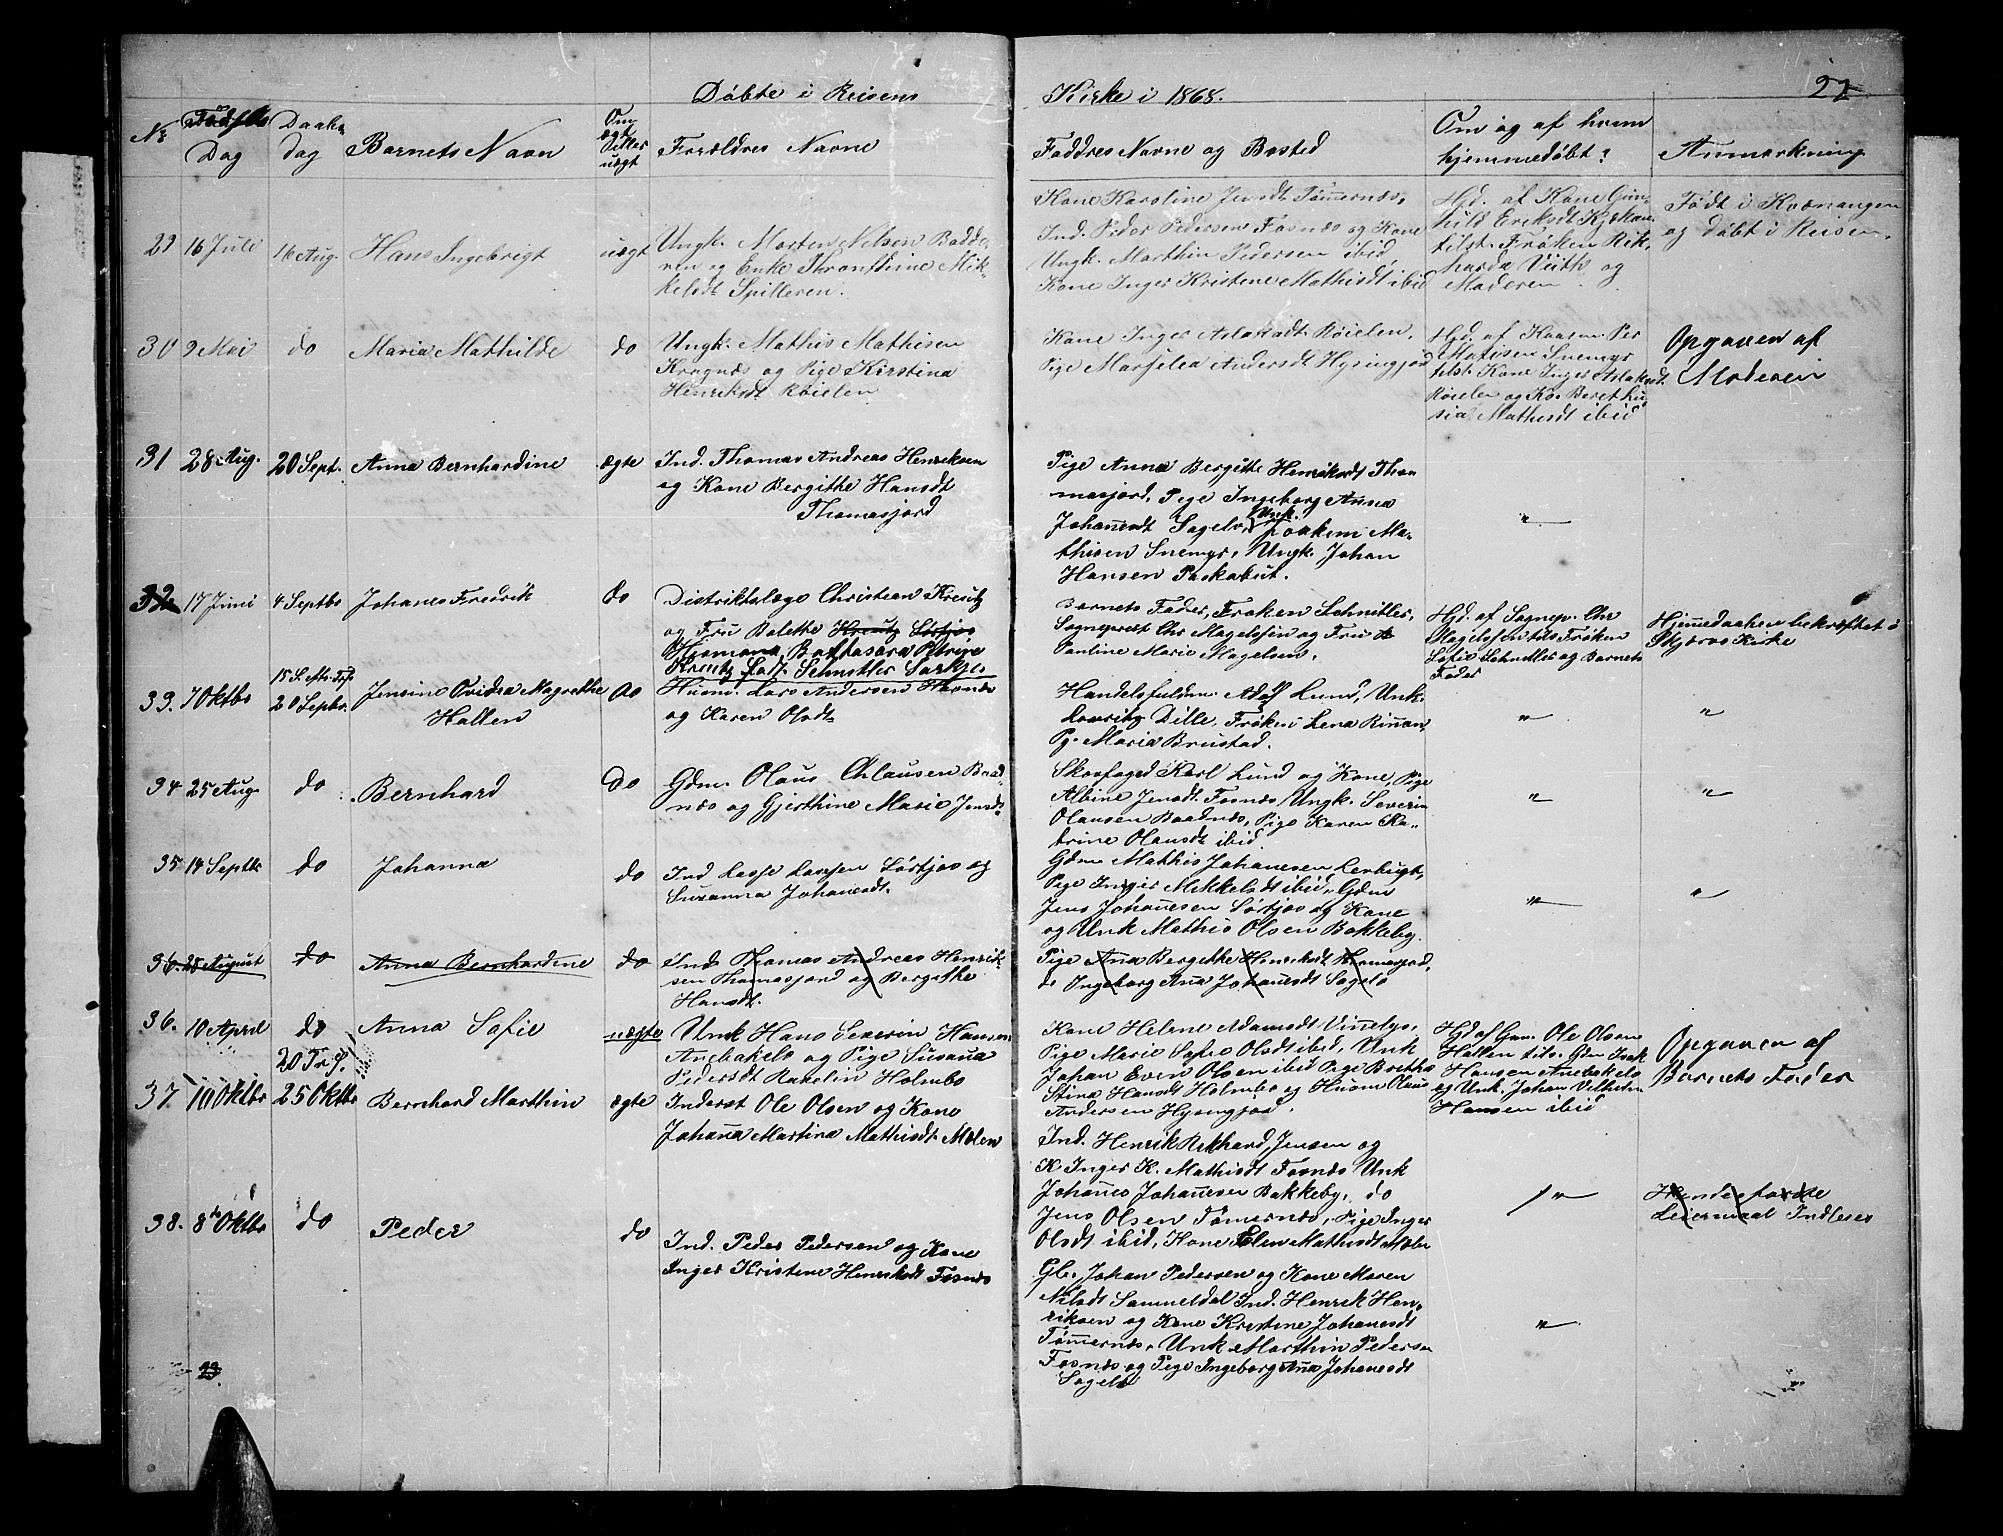 Døbte i Reisens Kirke i 1868. 22
No
Fødsels Dag
Daabs dag
Barnets Navn
Om ægte eller uægt
Forældres Navne
Faddres Navne og Bosted
Om og af hvem hjemmedøbt?
Anmærkning
29 16 Juli 16 Aug. Hans Ingebrigt uægt
Ungk. Morten Nilsen Badde-
ren og Enke Thronddine Mik-
kelsdt Spilderen.
Kone Karoline Jensdt Tømernæs,
Ind. Peder Pedersen Fosnæs og Kone
Ungk. Marthin Pedersen ibid,
Kone Inger Kristene Mathisdt ibid
Hjd. af Kone Gun-
hild Eriksdt Kjækan
tilst. Frøken Rik-
harda Vüth og
Moderen.
Født i Kvænangen
og døbt i Reisen.
30 9 Mai do Maria Mathilde do
Ungk. Mathis Mathisen
Kragnæs og Pige Kirstina
Henriksdt Røielen
Kone Inger Aslaksdt Røielen,
Pige Marselea Andersdt Hysingjord
Hjd. af Haasen Per
Matisen Snemyr
tilst. Kone Inger Aslaksdt.
Røielen og Ko. Beret hu-
sia Mathisdt ibid
Opgaven af
Moderen
31 28 Aug. 20 Sept. Anna Bernhardine ægte
Ind. Thomas Andreas Henriksen
og Kone Bergithe Hansdt
Thomasjord
Pige Anna Bergitte Henriksdt Thom
masjord, Pige Ingeborg Anna
Johanesdt Sagelv, Unk. Joakim Ma-
thisen Snemyr, Ungk. Johan
Hansen Paskabut.
"
32 17 Juni 4 Septbr Johanes Fredrik do
Distriktslæge Christian Kreutz
og Fru Bolette Kreutz Sørkjos
Hiomana Baltasara Petrine
Kreutz født Schnitler Sørkjos
Barnets Fader, Frøken Schnitler,
Sognepræst Chr Magelsen og Frue
Pauline Marie Magelsen.
Hjd. af Sognep. Chr
Magelsen tils. Frøken
Sofie Schnitler og Barnets
Fader
Hjemedaaben bekræftet i
Skjærvø Kirke
33. 7 Oktbr 20 Septbr. Jensine Ovidia Magrethe do
Hallen
Husm. Lars Andersen
og Karen Olsdt
Handelsfuldm. Adolf Lund, Unk.
Lauritz Dille, Frøken Lena Rinan
Pg. Maria Brustad.
" "
34 25 Aug. do Bernhard do
Gdm. Olaus Clausen Baad-
næs og Gjerthine Marie Jensdt
Skovfoged Karl Lund og Kone, Pige
Albine Jensdt Fosnæs, Ungk. Severin
Olausen Baadnæs, Pige Karen Ka-
trine Olausdt ibid.
" "
35 14 Septbr do Johanna do
Ind Lasse Larsen Sørkjos og
Susanna Johanesdt.
Gdm Mathis Johanesen Lenbugt,
Pige Inger Mikkelsdt ibid, Gdm
Jens Johanesen Sørkjos og Kone
og Unk Mathis Olsen Bakkeby.
" "
36. 28 August do Anna Bernhardine do
Ind Thomas Andreas Henrik-
sen Thomasjord og Bergithe
Hansdt.
Pige Ana Bergitte Henriksdt Thomasjord,
do Ingeborg Ana Johanesdt Sagelv
36. 10 April do Anna Sofie uægte
Unk Hans Severin Hansen
Anebakels og Pige Susana
Pedersdt Ravelin Holmbo
Kone Helene Adamsdt Vinelys,
Pige Marie Sofie Olsdt ibid, Unk
Johan Even Olsen ibid Pige Berithe
Stina Hansdt Holmbo og Husm Olaus
Andersen Hysingjord.
Hjd af Gm. Ole Olsen
Hallen tils. Gdm Isak
Hansen Anebakels
og Unk. Johan Vilhelm
Hansen ibid
Opgaven af
Barnets Fader
20 Tr. S.
37 10 Oktbr 25 Oktbr Bernhard Marthin ægte
Inderst Ole Olsen og Kone
Johana Martina Mathisdt. Molen
Ind. Henrik Rikhard Jensen og
K. Inger K. Mathisdt Fosnæs Unk
Johanes Johanesen Bakkeby, do
Jens Olsen Tømernæs, Pige Inger
Olsdt ibid, Kone Elen Mathisdt Molen
"
38. 8de Oktbr do Peder do
Ind. Peder Pedersen og Kone
Inger Kristene Henriksdt Fosnæs
Gb. Johan Pedersen og Kone Maren
Nilsdt Sammeldal Ind. Henrik Hen-
riksen og Kone Kristine Johanesdt
Tømernæs, Unk Marthin Pedersen
Fosnæs og Pige Ingeborg Ana Johanesdt
Sagelv
"
Leiermaal Indleses
23